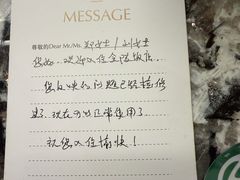 MESSAGE
尊敬的Dear Mr./Ms. 郑女士/刘女士
您好，欢迎入住金陵饭店。
您反映的问题已经检修
完了，现在可以正常使用了
祝您入住愉快！